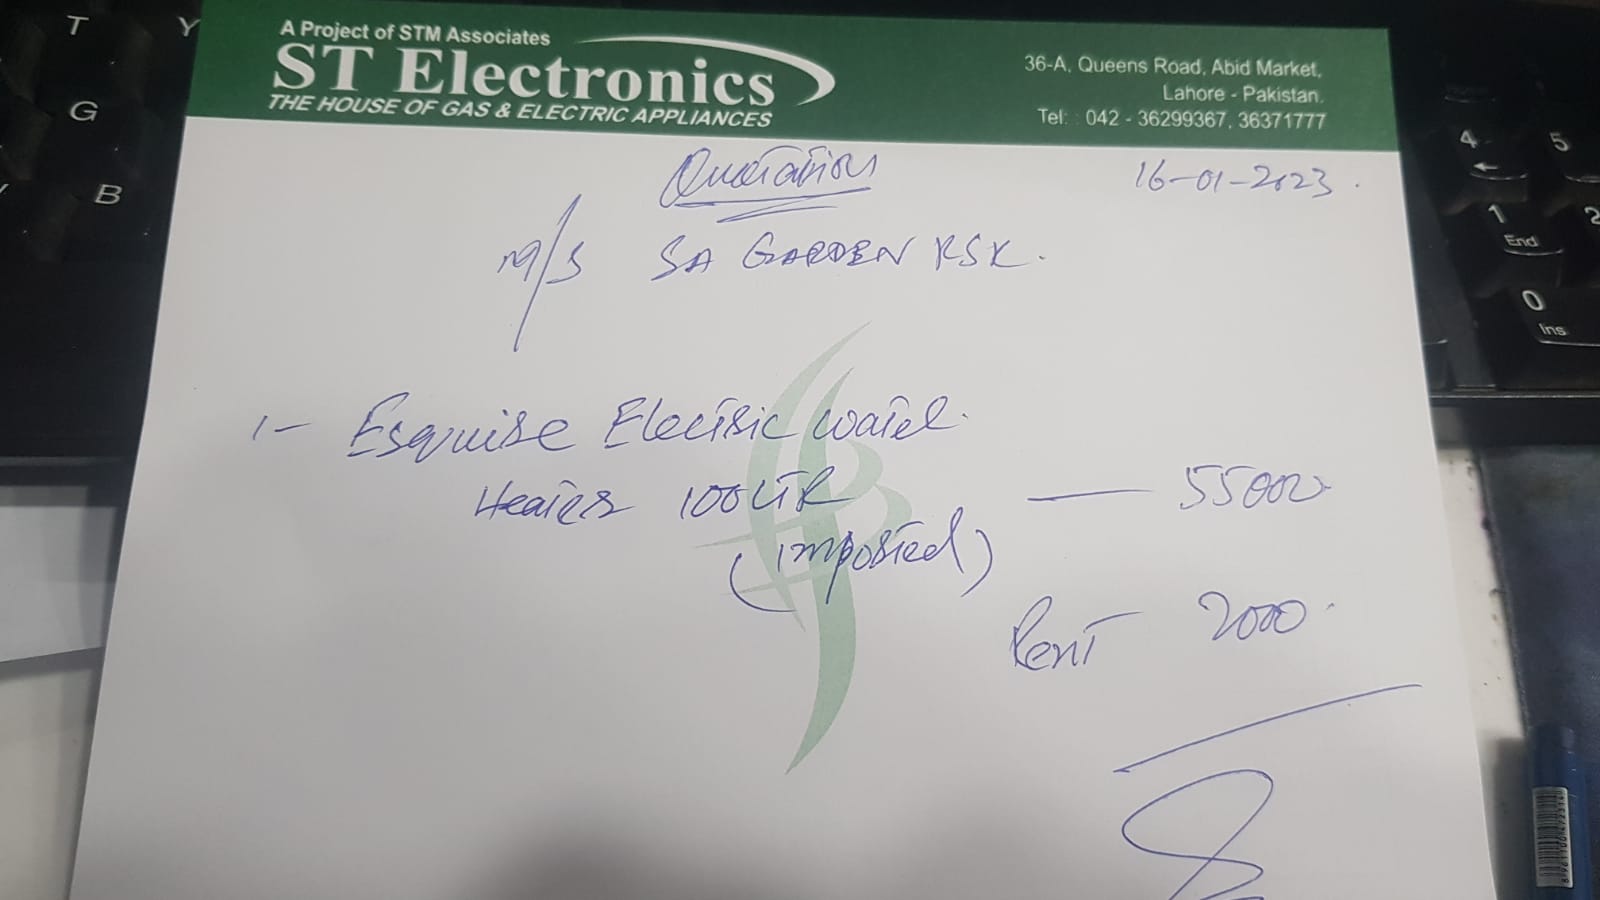 A Project of STM Associates
ST Electronics
THE HOUSE OF GAS & ELECTRIC APPLIANCES
36-A, Queens Road, Abid Market,
Lahore - Pakistan.
Tel: : 042 - 36299367, 36371777
Quotation
16-01-2023.
M/S SA GARDEN KSK.
1- Esquire Electric water
Heater 100 LTR — 55000
(imported)
Rent 2000
T
Y
G
B
4
5
1
End
2
0
Ins